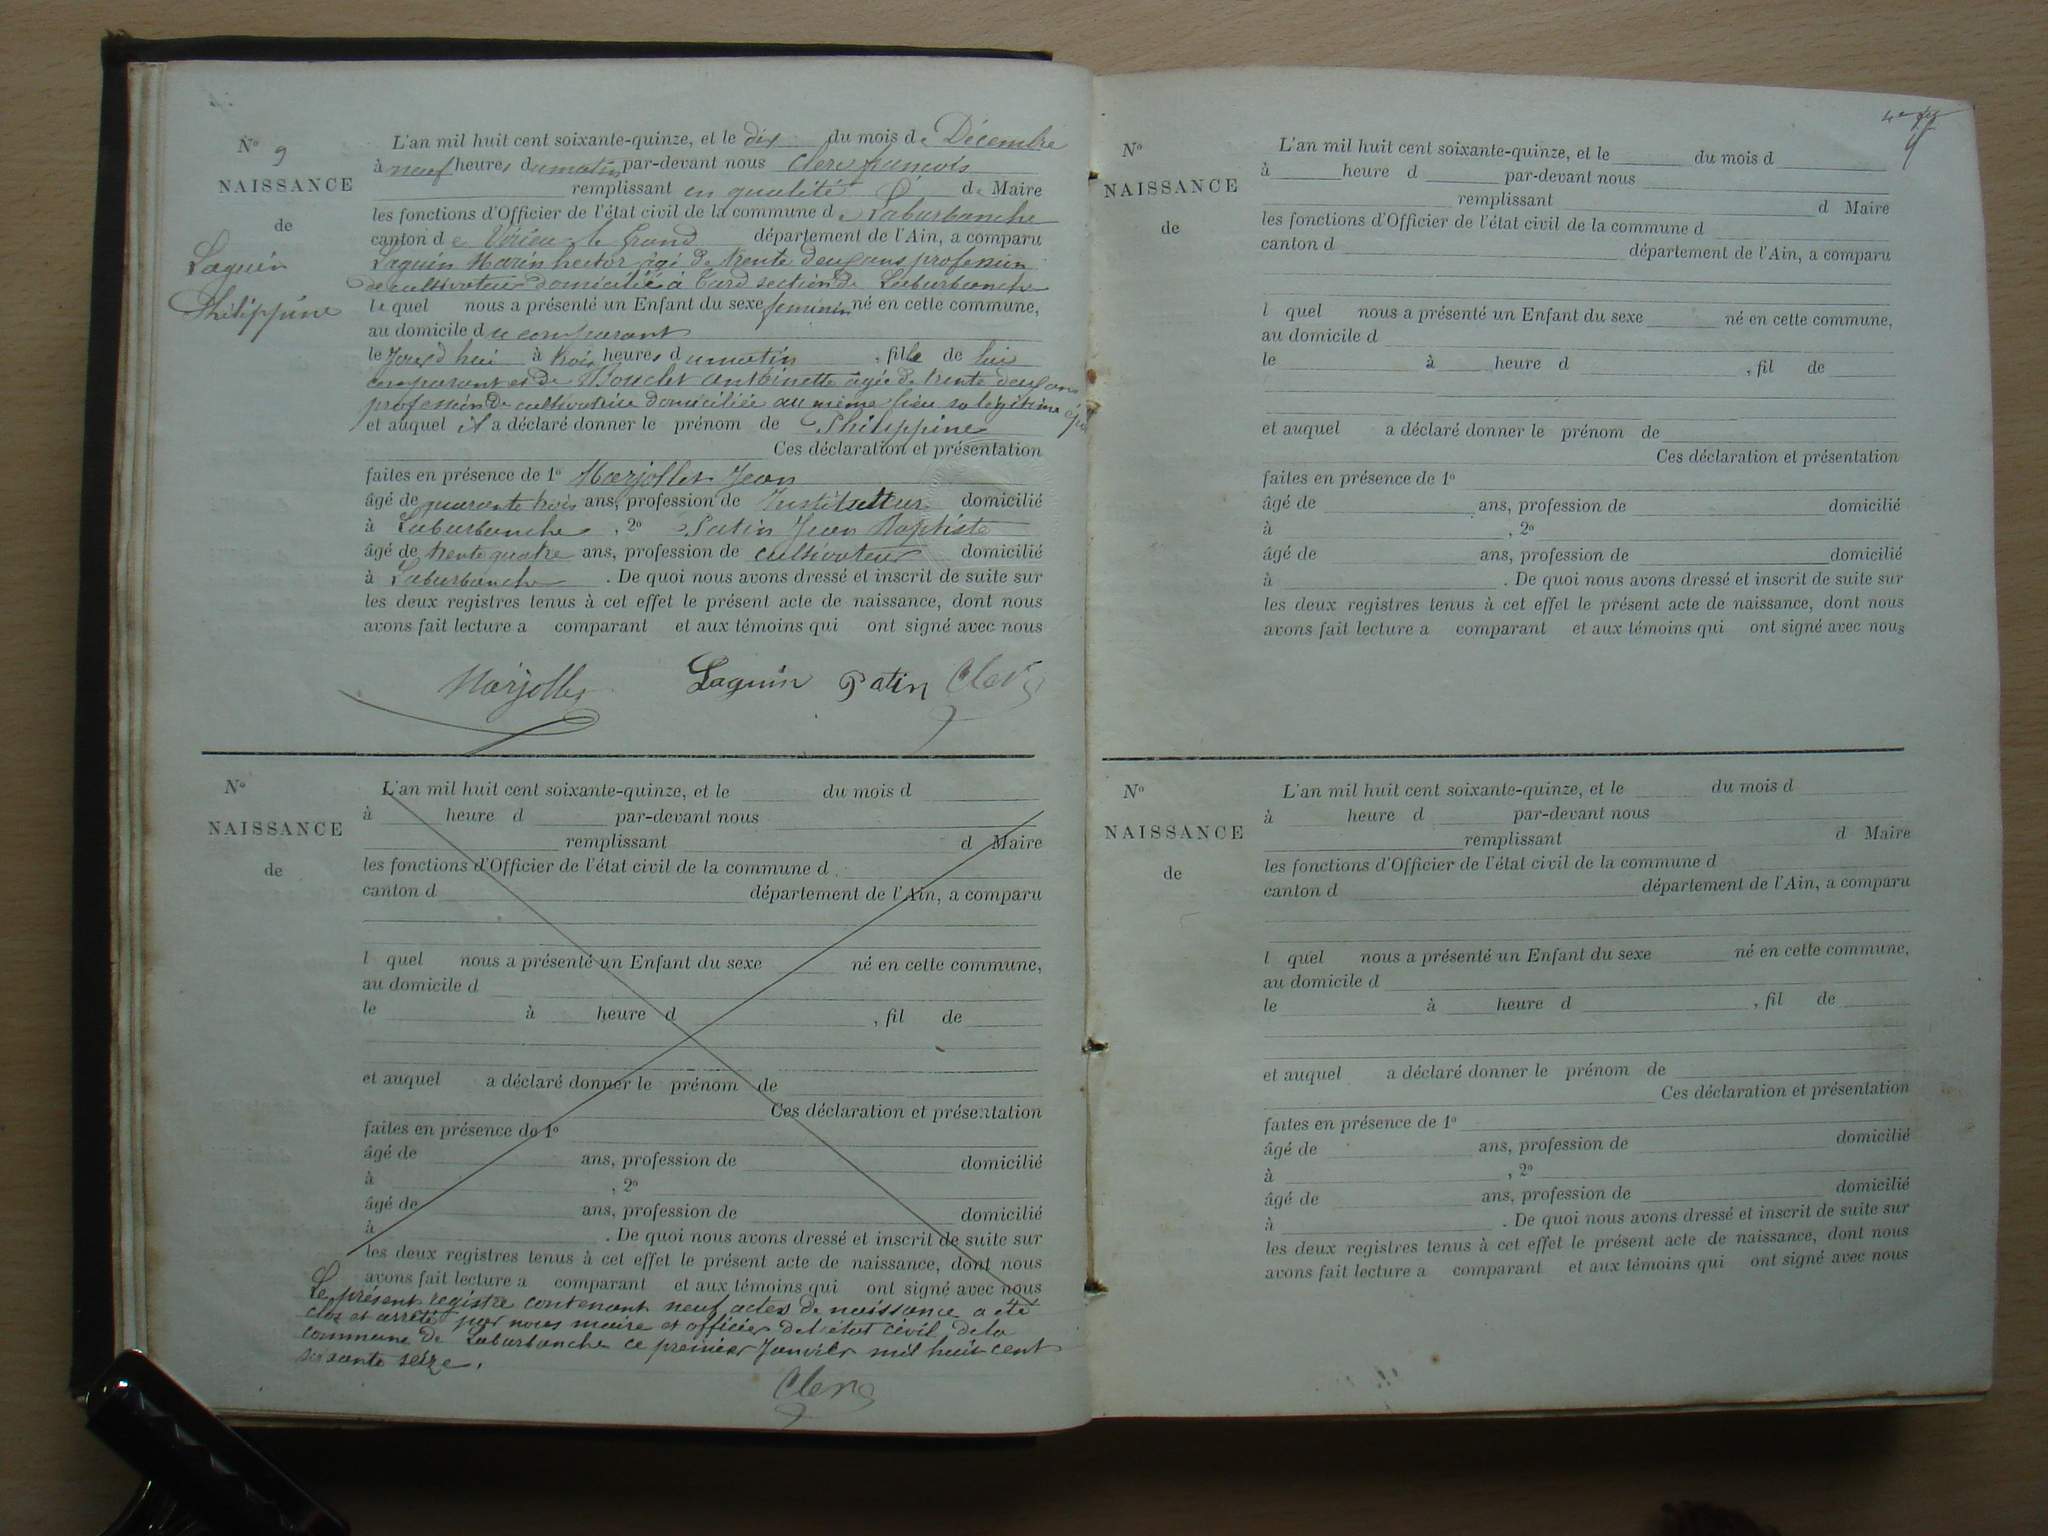 N° 9
NAISSANCE
de
Laguin
Philippine
L'an mil huit cent soixante-quinze, et le dix du mois de Décembre
à neuf heures du matin par-devant nous Clerc françois
remplissant en qualité d Maire
les fonctions d'Officier de l'état civil de la commune de Laburbanche
canton de Virieu-le-Grand département de l'Ain, a comparu
Laguin Marin hector âgé de trente deux ans profession
de cultivateur domicilié à section de Laburbanche
le quel nous a présenté un Enfant du sexe féminin né en cette commune,
au domicile du comparant
le jourd'hui à trois heures du matin, fille de lui
comparant et de antoinette âgée de trente deux ans
profession de cultivatrice domiciliée au même lieu sa légitime
et auquel il a déclaré donner le prénom de Philippine
Ces déclaration et présentation
faites en présence de 1° Marjollet Jean
âgé de quarante trois ans, profession de Instituteur domicilié
à Laburbanche, 2° Patin Jean Baptiste
âgé de trente quatre ans, profession de cultivateur domicilié
à Laburbanche. De quoi nous avons dressé et inscrit de suite sur
les deux registres tenus à cet effet le présent acte de naissance, dont nous
avons fait lecture a comparant et aux témoins qui ont signé avec nous
Marjollet Laguin Patin Clerc
N°
NAISSANCE
de
L'an mil huit cent soixante-quinze, et le du mois d
à heure d par-devant nous
remplissant d Maire
les fonctions d'Officier de l'état civil de la commune d
canton d département de l'Ain, a comparu
l quel nous a présenté un Enfant du sexe né en cette commune,
au domicile d
le à heure d , fil de
et auquel a déclaré donner le prénom de
Ces déclaration et présentation
faites en présence de 1°
âgé de ans, profession de domicilié
à , 2°
âgé de ans, profession de domicilié
à . De quoi nous avons dressé et inscrit de suite sur
les deux registres tenus à cet effet le présent acte de naissance, dont nous
avons fait lecture a comparant et aux témoins qui ont signé avec nous
Le présent registre contenant neuf actes de naissance a été
clos et arrêté par nous maire et officier de l'état civil de la
commune de Laburbanche ce premier Janvier mil huit cent
soixante seize.
Clerc
N°
NAISSANCE
de
L'an mil huit cent soixante-quinze, et le du mois d
à heure d par-devant nous
remplissant d Maire
les fonctions d'Officier de l'état civil de la commune d
canton d département de l'Ain, a comparu
l quel nous a présenté un Enfant du sexe né en cette commune,
au domicile d
le à heure d , fil de
et auquel a déclaré donner le prénom de
Ces déclaration et présentation
faites en présence de 1°
âgé de ans, profession de domicilié
à , 2°
âgé de ans, profession de domicilié
à . De quoi nous avons dressé et inscrit de suite sur
les deux registres tenus à cet effet le présent acte de naissance, dont nous
avons fait lecture a comparant et aux témoins qui ont signé avec nous
N°
NAISSANCE
de
L'an mil huit cent soixante-quinze, et le du mois d
à heure d par-devant nous
remplissant d Maire
les fonctions d'Officier de l'état civil de la commune d
canton d département de l'Ain, a comparu
l quel nous a présenté un Enfant du sexe né en cette commune,
au domicile d
le à heure d , fil de
et auquel a déclaré donner le prénom de
Ces déclaration et présentation
faites en présence de 1°
âgé de ans, profession de domicilié
à , 2°
âgé de ans, profession de domicilié
à . De quoi nous avons dressé et inscrit de suite sur
les deux registres tenus à cet effet le présent acte de naissance, dont nous
avons fait lecture a comparant et aux témoins qui ont signé avec nous